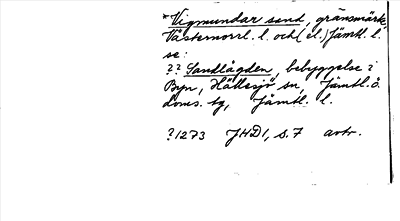 *Vigmundar sand, gränsmärke,
Västernorrl. l. och (el.) Jämtl. l.
se:
?? Sandlägden, bebyggelse i
Byn, Hällesjö sn, Jämtl. ö.
doms. tg, Jämtl. l.
?1273 JHD1, s. 7 avtr.